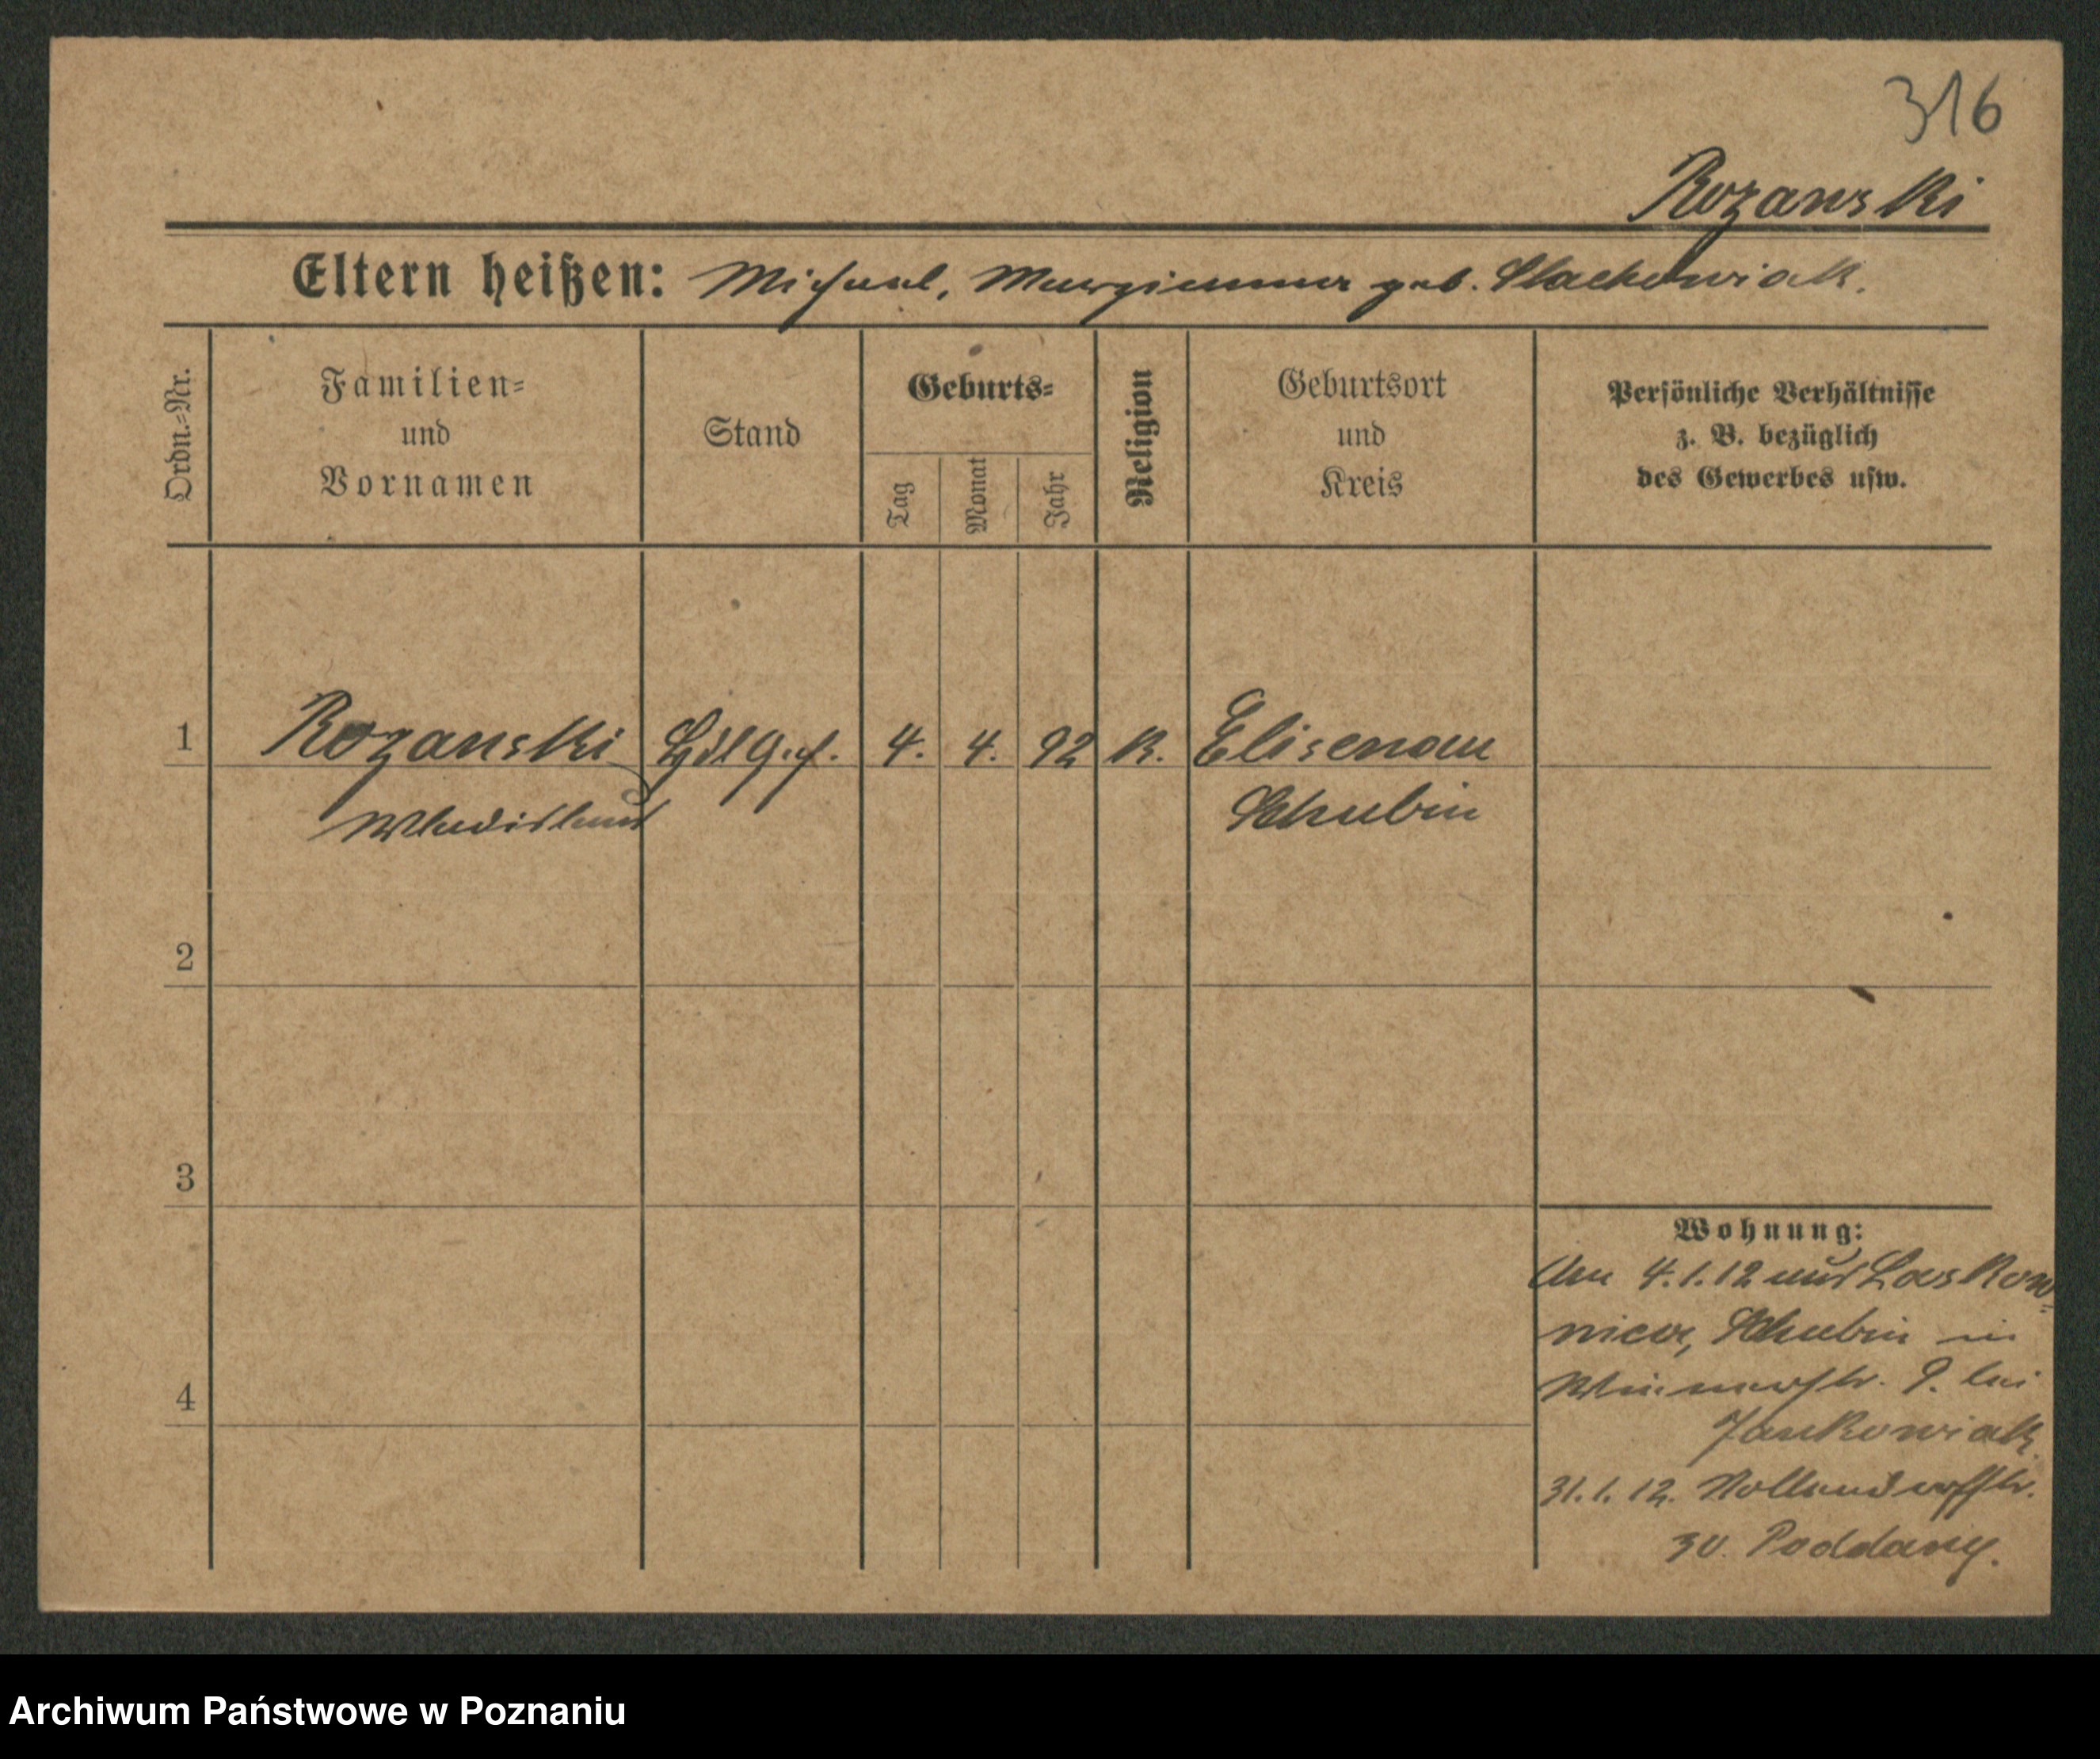 316
Rozanski
Eltern heißen: Michael, Marzianna geb. Stachowiak.
Ordn.=Nr.
Familien=
und
Vornamen
Stand
Geburts=
Tag
Monat
Jahr
Religion
Geburtsort
und
Kreis
Persönliche Verhältnisse
z. B. bezüglich
des Gewerbes usw.
1 Rozanski Hdlg.. 4. 4. 92 K. Elisenau
Wladislaus Schubin
2
3
4
Wohnung:
Am 4.1.12 aus Laskow=
nica, Schubin in
9. bei
Jankowiak
31.1.12.
30. Poddany.
Archiwum Państwowe w Poznaniu